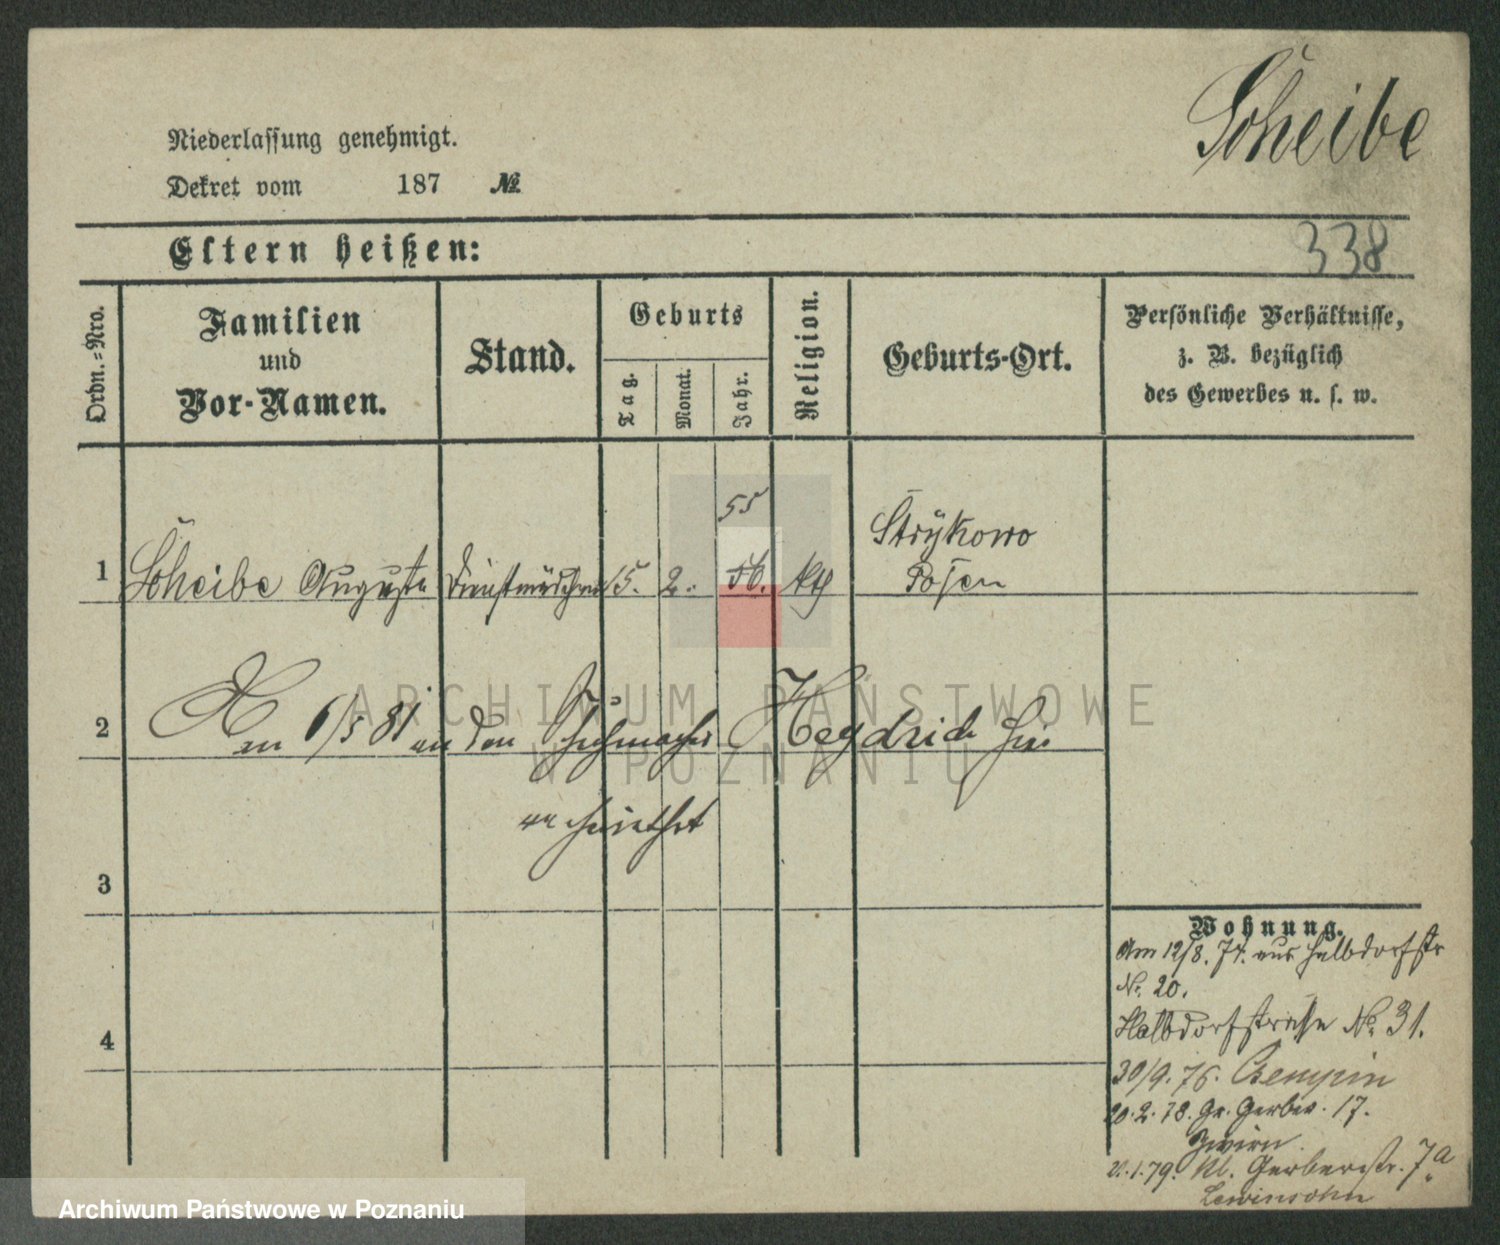 Scheibe
Niederlassung genehmigt.
Dekret vom 187 №
Eltern heißen:
338
Ordn.=Nro.
Familien
und
Vor-Namen.
Stand.
Geburts
Tag.
Monat.
Jahr.
Religion.
Geburts-Ort.
Persönliche Verhältnisse,
z. B. bezüglich
des Gewerbes u. s. w.
55
1 Scheibe Auguste Dienstmädchen 15. 2. 56. kth Strykowo
Posen
2 am 6/5 81 an den Schuhmacher Heydrich hier
verheirathet
3
4
Wohnung.
Am 12/8. 74. aus Halbdorfstr
N. 20.
Halbdorfstraße No 31.
30/9. 76. Czempin
20. 2. 78. Gr. Gerber. 17.
Zwirn.
2. 1. 79. Kl. Gerberstr. 7a
Lewinsohn
ARCHIWUM PAŃSTWOWE
W POZNANIU
Archiwum Państwowe w Poznaniu